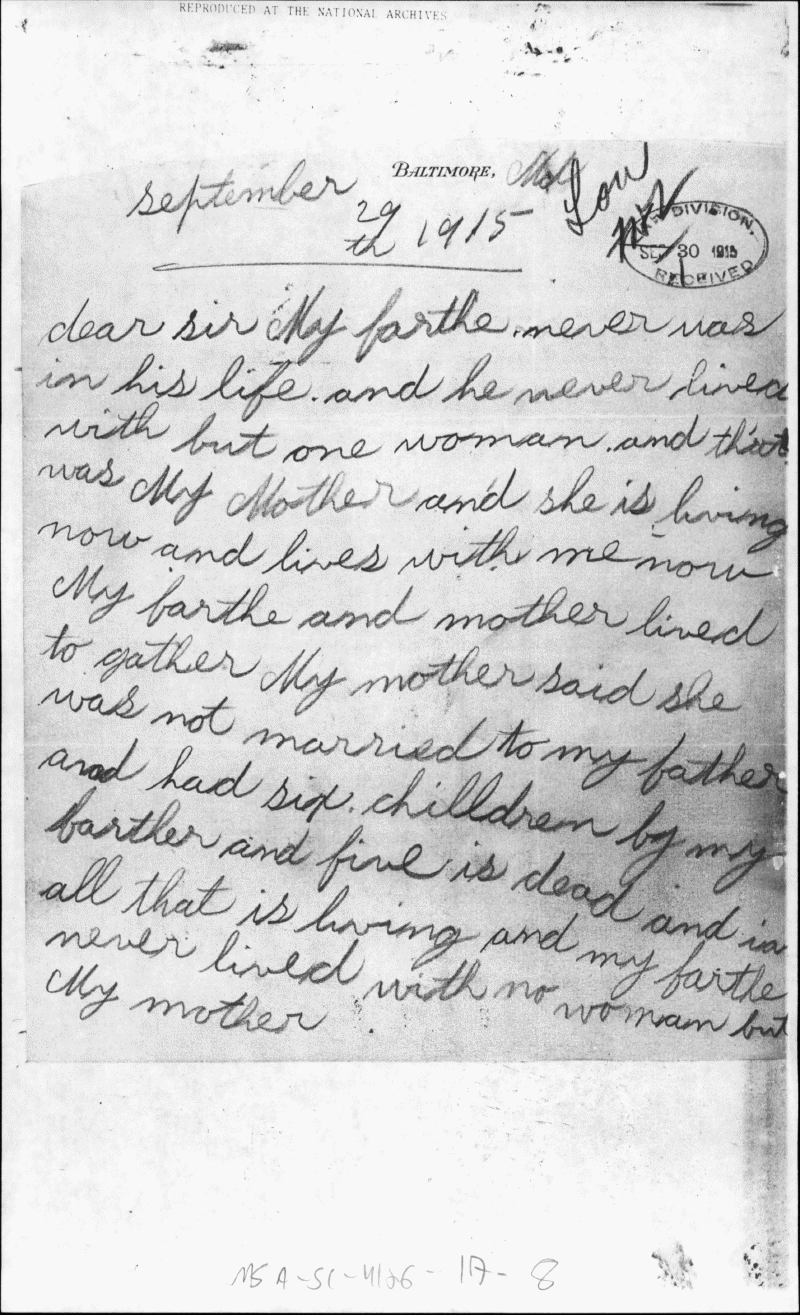 REPRODUCED AT THE NATIONAL ARCHIVES
BALTIMORE, Md
september
29
th 1915
Law
DIVISION.
SEP 30 1915
RECEIVED
dear sir My farthe. never was
in his life. and he never lived
with but one woman. and that.
was My Mother and she is living
now and lives with me now
My farthe and mother lived
to gather My mother said she
was not married to my father
and had six. chilldren by my
farther and five is dead and ia
all that is living and my farthe
never lived with no woman but
My mother
MSA-SC-4126-17-8